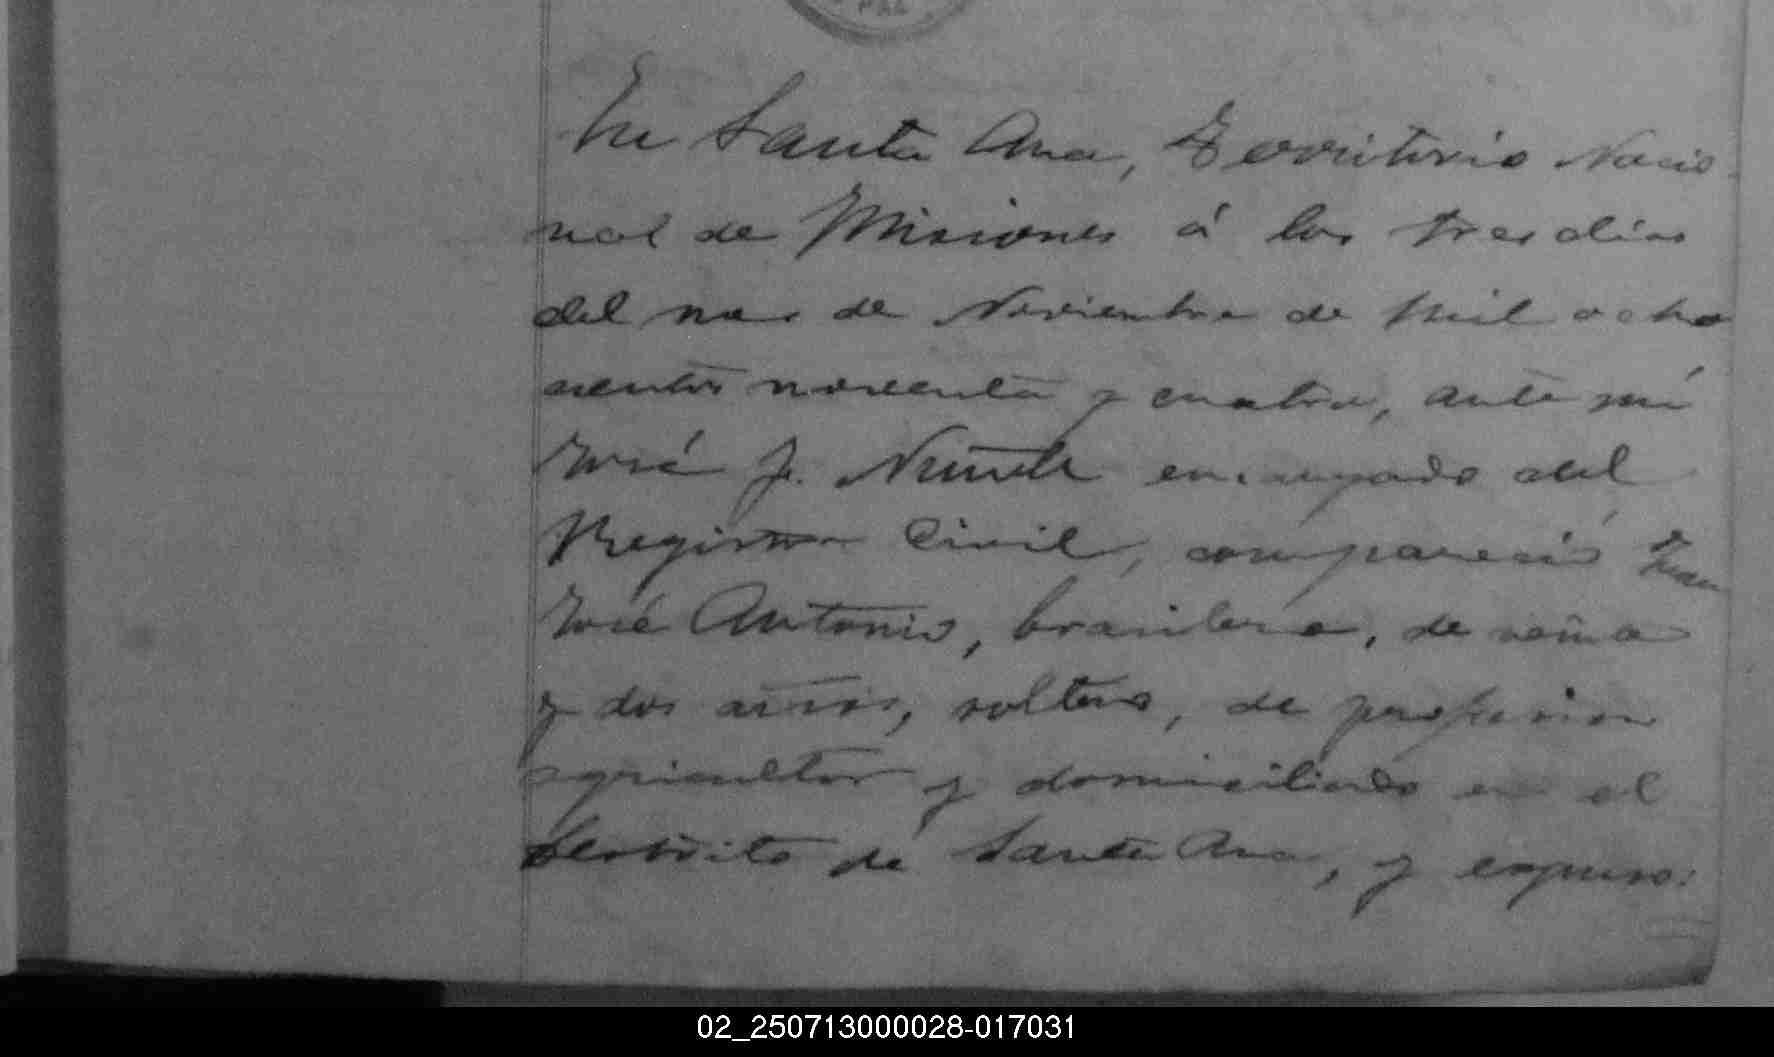 En Santa Ana, Territorio Nacio
nal de Misiones á los tres dias
del mes de Noviembre de mil ocho
cientos noventa y cuatro, ante mí
José J. Nuñez encargado del
Registro Civil, compareció Juan
José Antonio, brasilero, de veinte
y dos años, soltero, de profesion
agricultor y domiciliado en el
distrito de Santa Ana, y expuso:
02_250713000028-017031